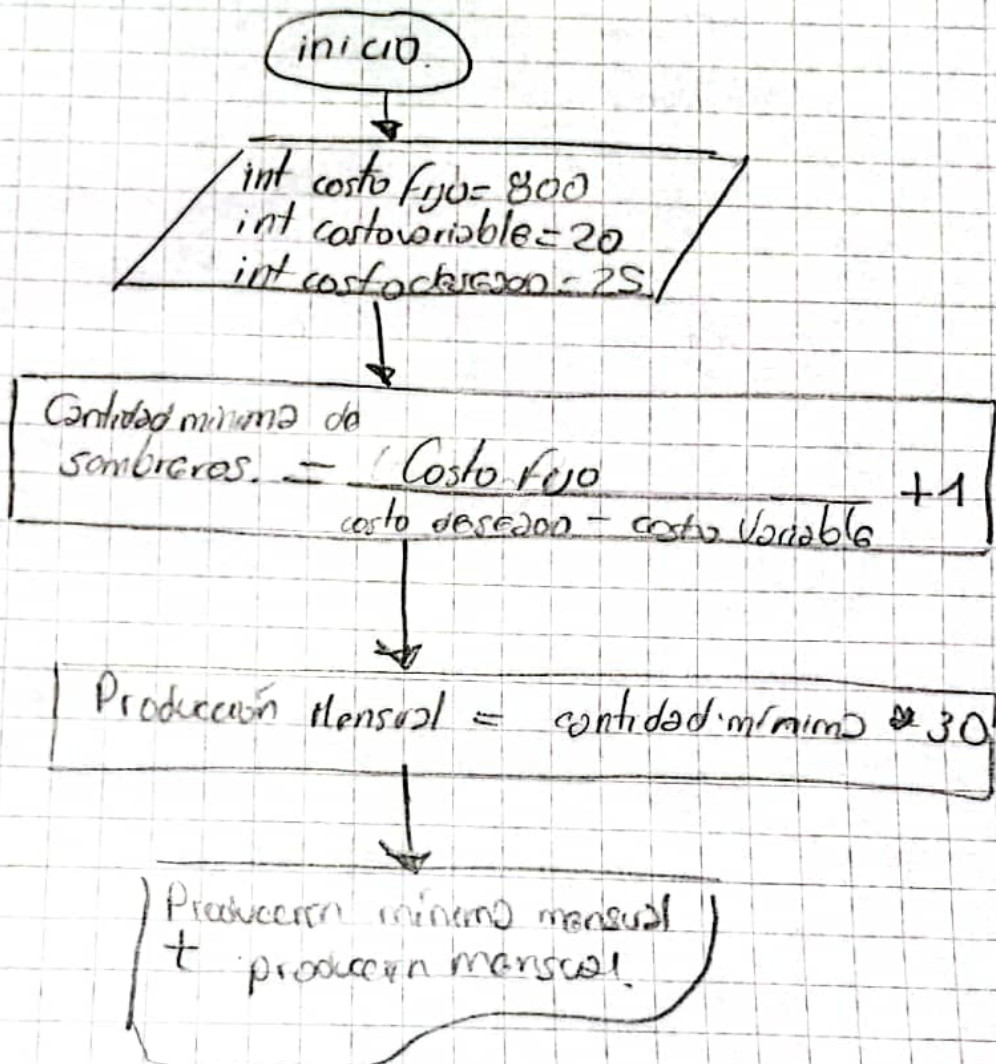 inicio.
int costo fijo = 800
int costovariable = 20
int costodeseado = 25
Cantidad minima de
sombreros. = Costo fijo + 1
costo deseado - costo Variable
Producción Mensual = cantidad minima * 30
Produccion mínima mensual
+ produccion mensual.